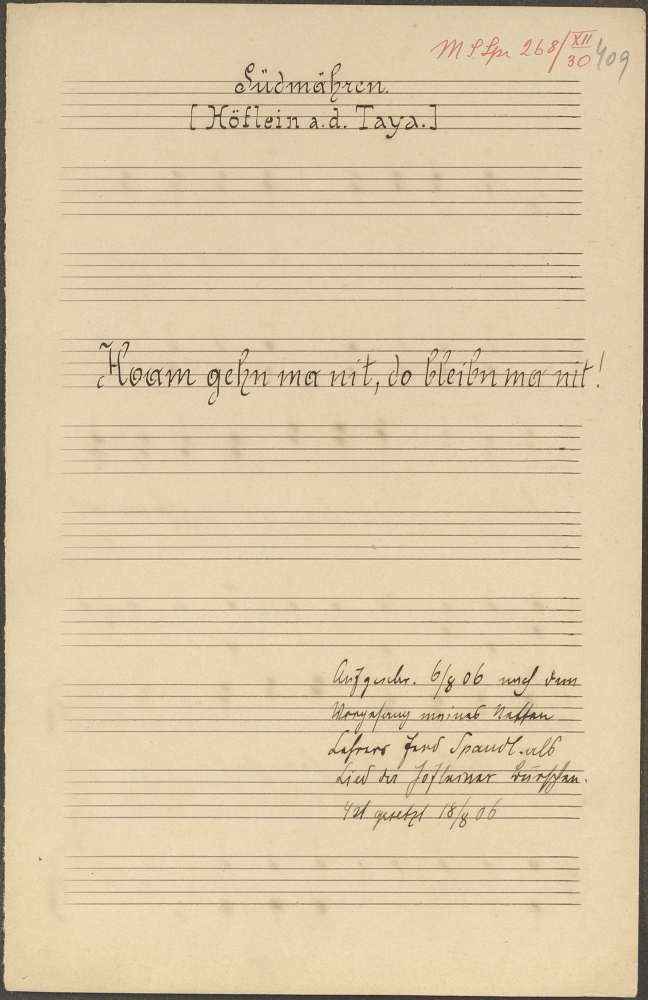 M S Spr 268/XII 30 409
Südmähren.
[Höflein a.d. Taya.]
Hoam gehn ma nit, do bleibn ma nit!
Aufgeschr. 6/8 06 nach dem
Vorgesang meines Neffen
Lehrers Ferd Spandl. als
Lied der Höfleiner Burschen.
gesetzt 18/8 06